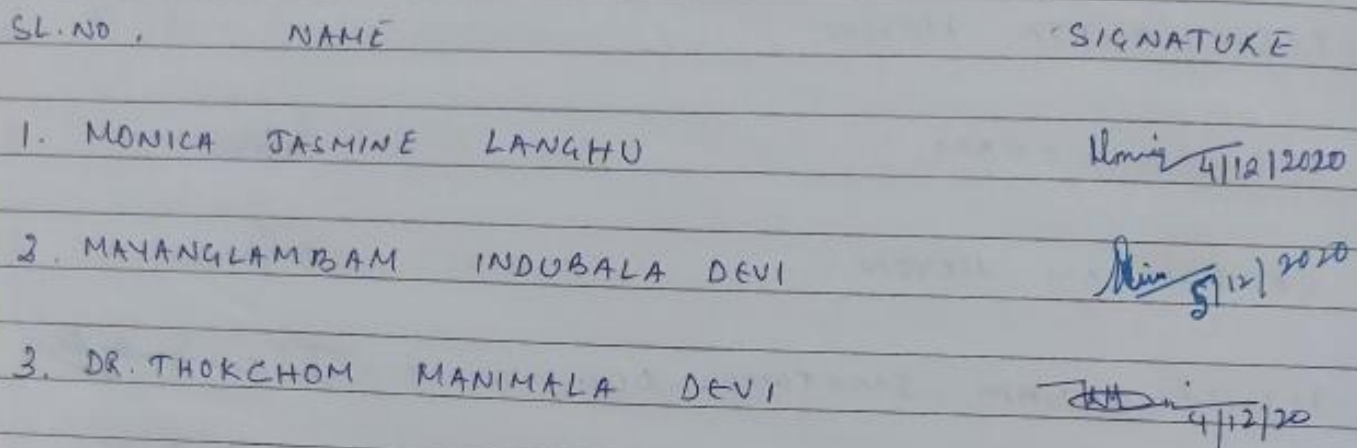 SL.NO. NAME SIGNATURE
1. MONICA JASMINE LANGHU 4/12/2020
2. MAYANGLAMBAM INDUBALA DEVI 5/12/2020
3. DR. THOKCHOM MANIMALA DEVI 4/12/20